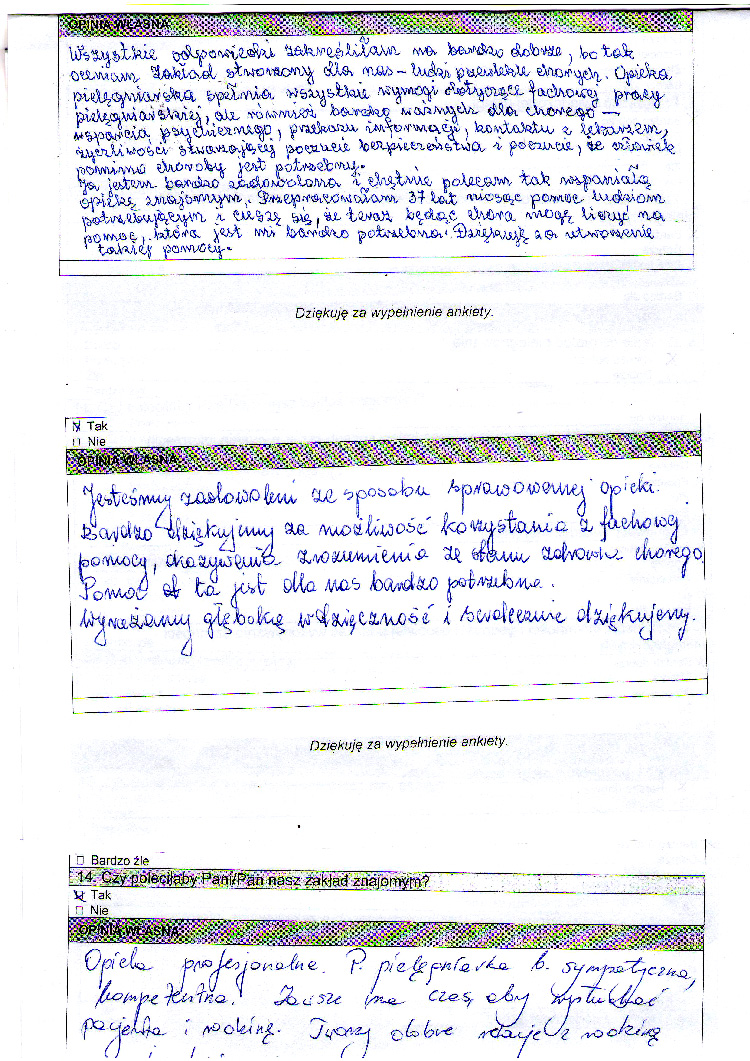 OPINIA WŁASNA
Wszystkie odpowiedzi zakreśliłam na bardzo dobrze, bo tak
oceniam Zakład stworzony dla nas – ludzi przewlekle chorych. Opieka
pielęgniarska spełnia wszystkie wymogi dotyczące fachowej pracy
pielęgniarskiej, ale również bardzo ważnych dla chorego –
wsparcia psychicznego, przekazu informacji, kontaktu z lekarzem,
życzliwości stwarzającej poczucie bezpieczeństwa i poczucie, że człowiek
pomimo choroby jest potrzebny.
Ja jestem bardzo zadowolona i chętnie polecam tak wspaniałą
opiekę znajomym. Przepracowałam 37 lat niosąc pomoc ludziom
potrzebującym i cieszę się, że teraz będąc chora mogę liczyć na
pomoc, która jest mi bardzo potrzebna. Dziękuję za utworzenie
takiej pomocy.
Dziękuję za wypełnienie ankiety.
Tak
Nie
OPINIA WŁASNA
Jesteśmy zadowoleni ze sposobu sprawowanej opieki.
Bardzo dziękujemy za możliwość korzystania z fachowej
pomocy, okazywania zrozumienia ze stanu zdrowia chorego.
Pomoc ta jest dla nas bardzo potrzebna.
Wyrażamy głęboką wdzięczność i serdecznie dziękujemy.
Dziękuję za wypełnienie ankiety.
Bardzo źle
14. Czy poleciłaby Pani/Pan nasz zakład znajomym?
Tak
Nie
OPINIA WŁASNA
Opieka profesjonalna. P. pielęgniarka b. sympatyczna,
kompetentna. Zawsze ma czas, aby wysłuchać
pacjenta i rodzinę. Tworzy dobre relacje z rodziną